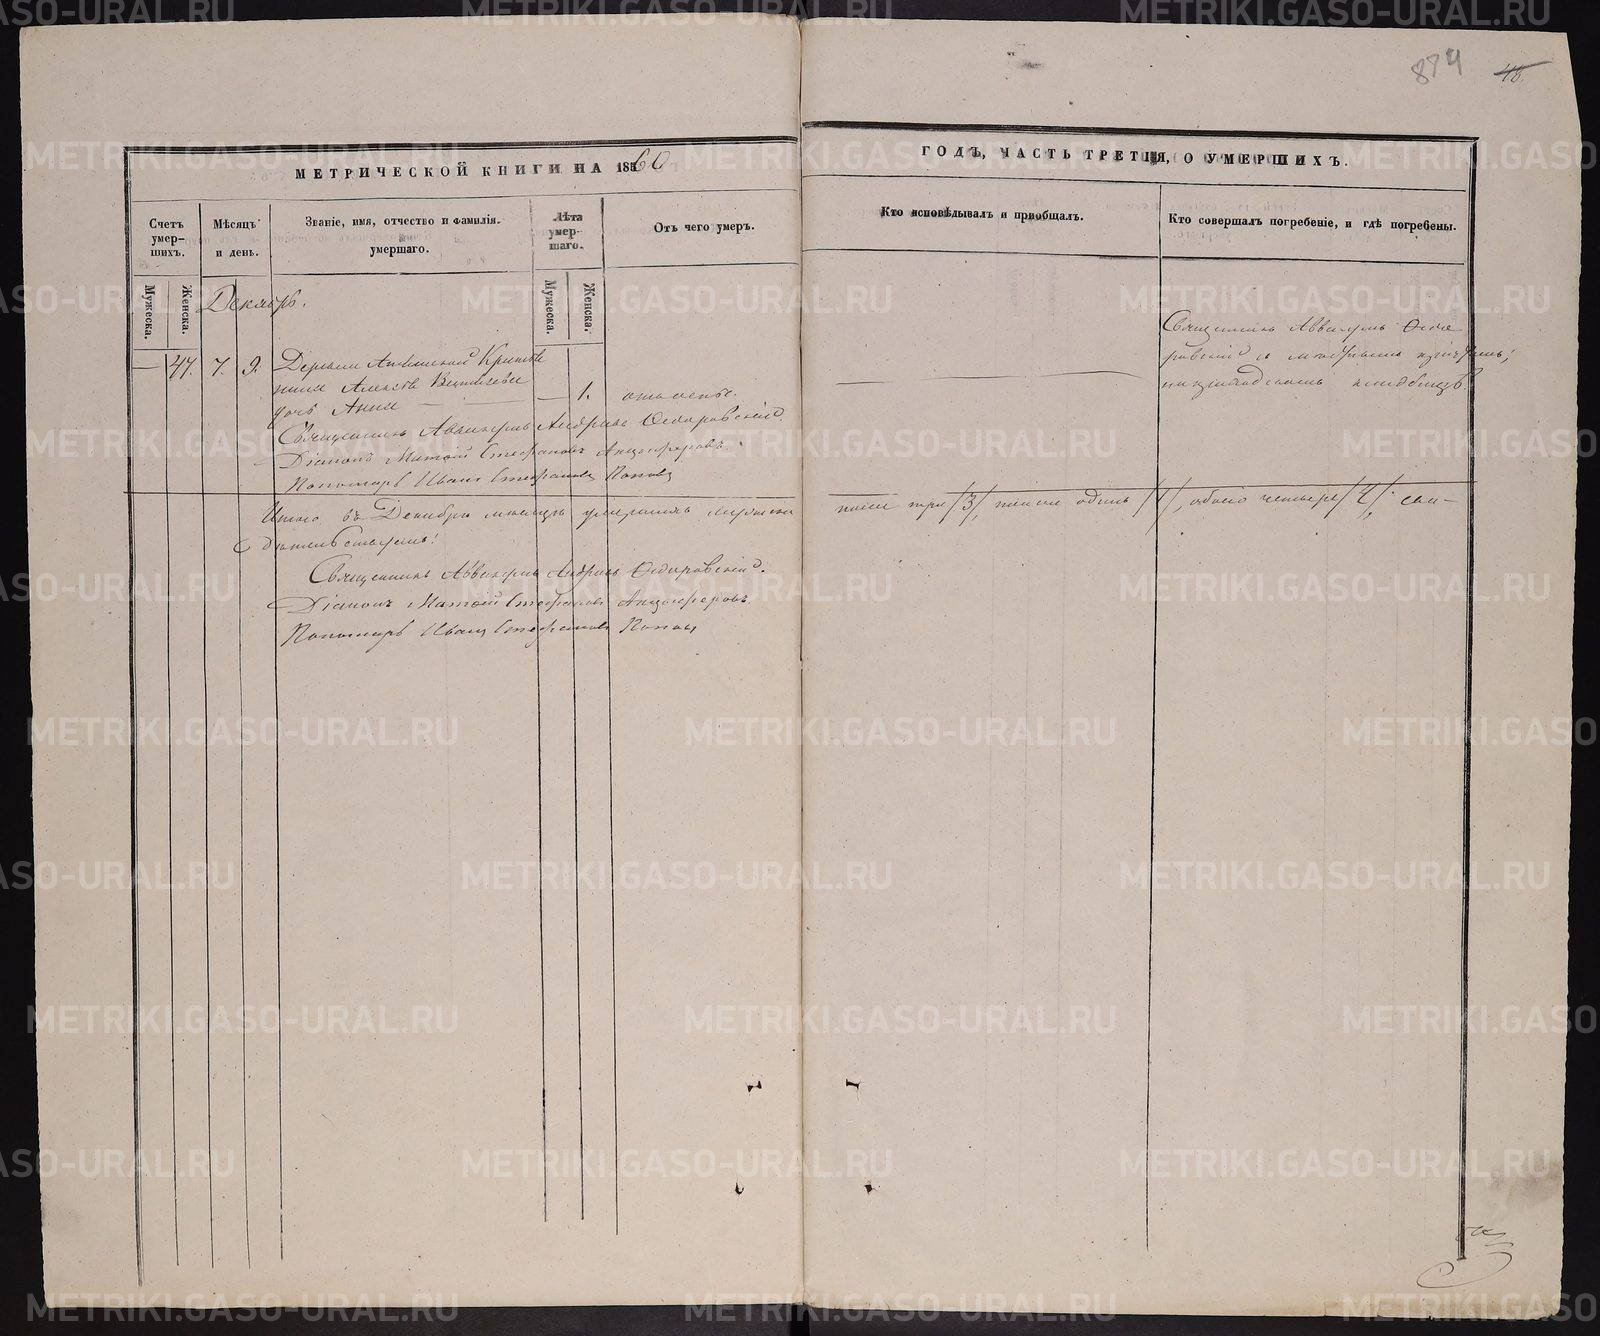 874 48.
МЕТРИЧЕСКОЙ КНИГИ НА 1860
ГОДЪ, ЧАСТЬ ТРЕТІЯ, О УМЕРШИХЪ.
Счетъ умер-шихъ.
Мѣсяцъ и день.
Званіе, имя, отчество и фамилія умершаго.
Лѣта умер-шаго.
Отъ чего умеръ.
Кто исповѣдывалъ и пріобщалъ.
Кто совершалъ погребеніе, и гдѣ погребены.
Мужеска.
Женска.
Мужеска.
Женска.
Декабрь.
— 47. 7. 9. Деревни
Алексѣя
дочь Анна — 1. отъ оспы.
Священникъ Аввакумъ Ѳедо
ровскій съ
на приходскомъ кладбищѣ
Священникъ Аввакумъ Андреевъ Ѳедоровскій.
Діаконъ Матѳій Стефановъ Анцыферовъ.
Пономарь Иванъ Стефановъ Поповъ
Итого въ Декабрѣ мѣсяцѣ умершихъ мужеска
пола три /3/, женска одинъ /1/, обоего четыре /4/; сви-
дѣтельствуемъ:
Священникъ Аввакумъ Андреевъ Ѳедоровскій.
Діаконъ Матѳій Стефановъ Анцыферовъ.
Пономарь Иванъ Стефановъ Поповъ
METRIKI.GASO-URAL.RU